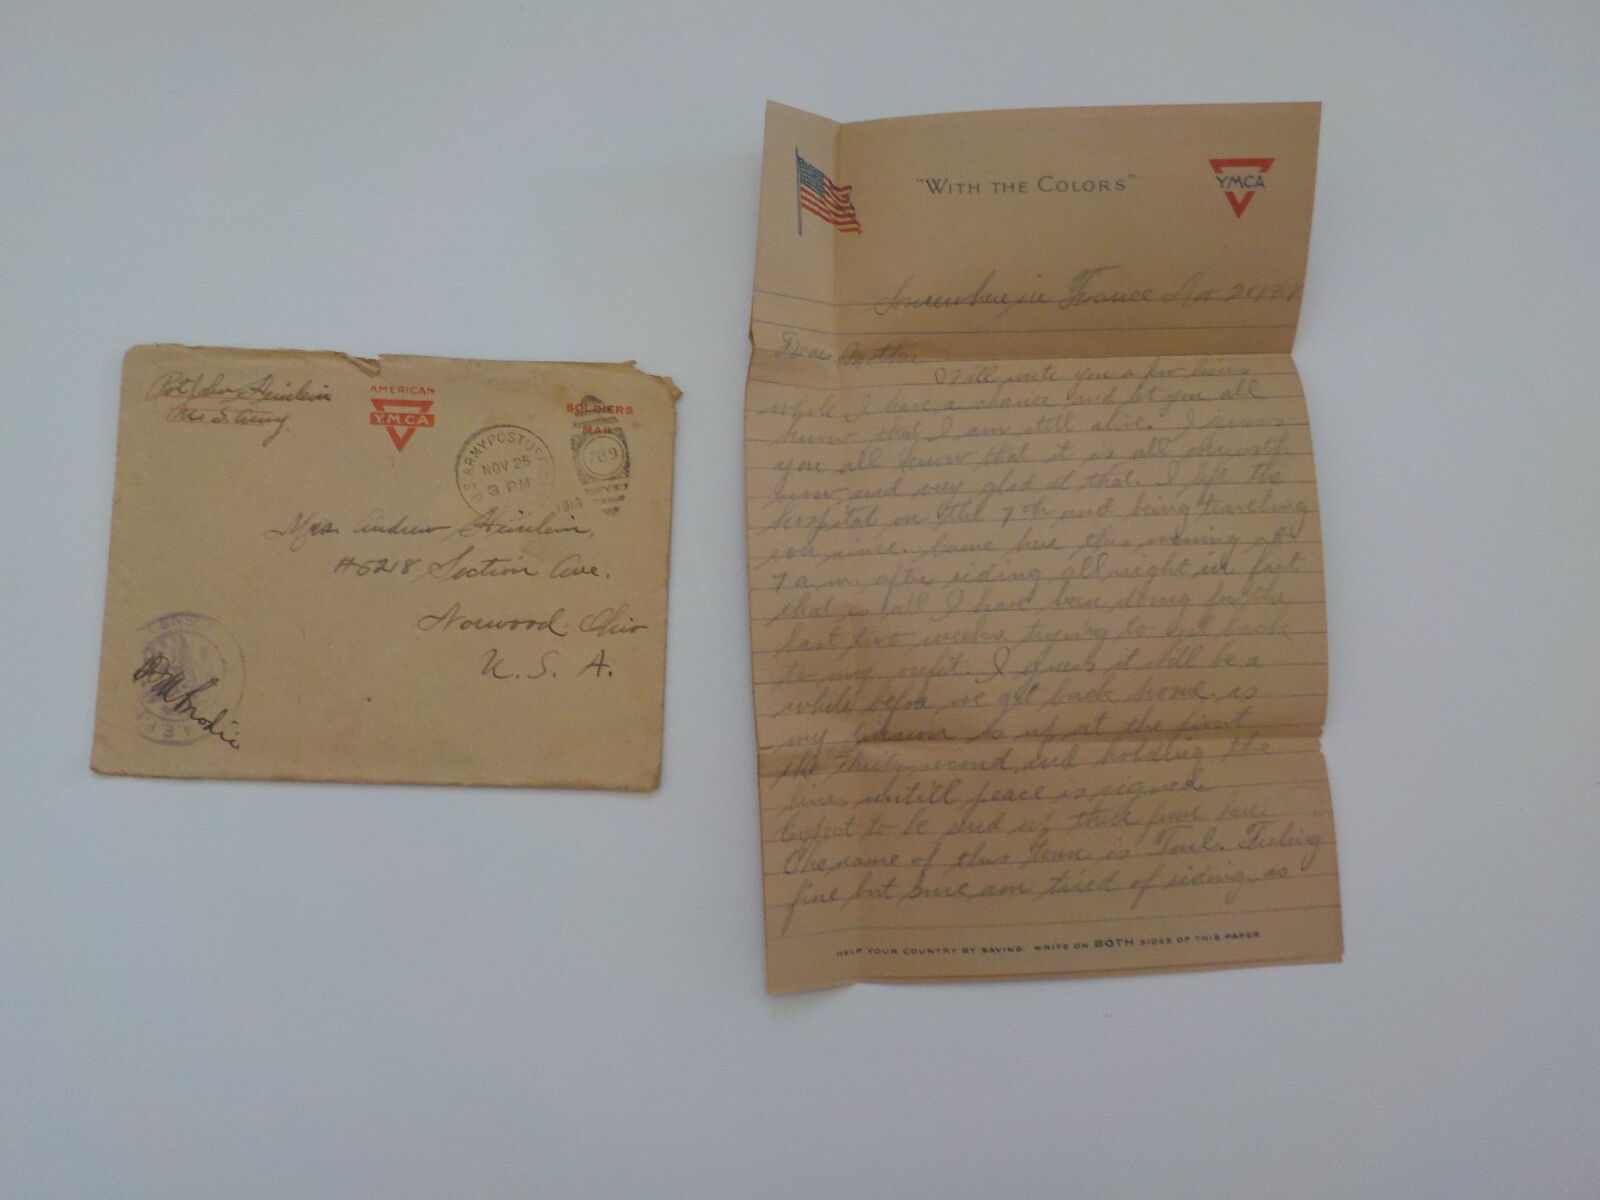 Heinlein
U.S. Army.
AMERICAN
YMCA
SOLDIERS
MAIL
U.S. ARMY POST OFFICE
NOV 25
3 PM
789
Mrs. Andrew Heinlein,
#5218 Section Ave.
Norwood Ohio
U. S. A.
CENSOR
A.E.F.
"WITH THE COLORS"
YMCA
Somewhere in France Nov
Dear Brother
Will write you a few lines
while I have a chance and let you all
know that I am still alive. I guess
you all know that it is all over with
now and very glad at that. I left the
hospital on the 7th and being traveling
ever since. Came here this morning at
7 a.m. after riding all night in fact
that is all I have been doing for the
last two weeks trying to get back
to my outfit. I guess it will be a
while before we get back home as
my division is up at the front
the Thirty second and holding the
lines untill peace is signed.
Expect to be send up there from here.
The name of this town is Toul. Feeling
fine but sure am tired of riding, as
HELP YOUR COUNTRY BY SAVING. WRITE ON BOTH SIDES OF THIS PAPER